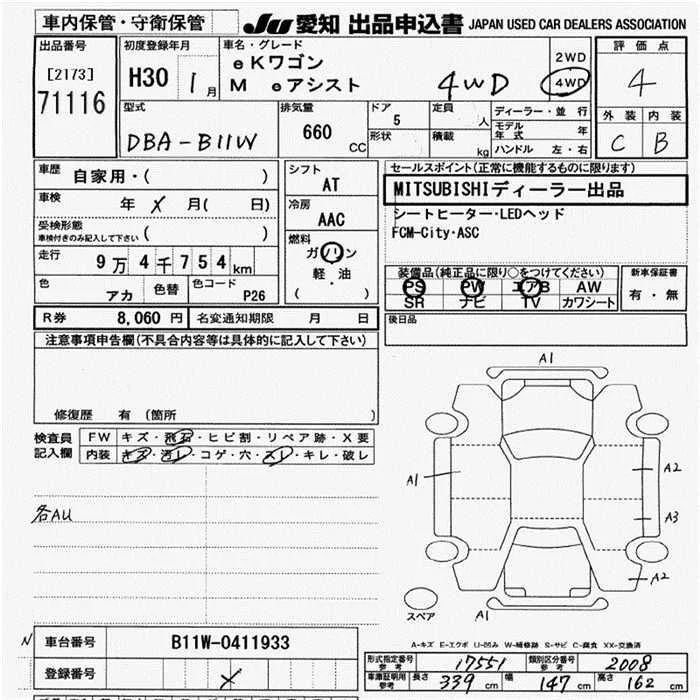 車内保管・守衛保管 JU 愛知 出品申込書 JAPAN USED CAR DEALERS ASSOCIATION
出品番号 [2173] 71116
初度登録年月 H30 1月
車名・グレード eKワゴン
M eアシスト 4WD
2WD 4WD
評価点 4
外装 内装
C B
型式 DBA-B11W
排気量 660 CC
ドア 5 形状
定員 人 積載 kg
ディーラー・並行
モデル年式
ハンドル 左・右
車歴 自家用・( )
車検 年 × 月( 日)
受検形態 車検付きのみ記入して下さい ( )
走行 9万4千754km
色 アカ 色替 色コード P26
シフト AT
冷房 AAC
燃料 ガソリン 軽・油 ( )
セールスポイント(正常に機能するものに限ります)
MITSUBISHIディーラー出品
シートヒーター・LEDヘッド
FCM-City・ASC
装備品(純正品に限り○をつけてください)
PS PW エアB AW
SR ナビ TV カワシート
新車保証書 有・無
R券 8,060円 名変通知期限 月 日
後日品
注意事項申告欄(不具合内容等は具体的に記入して下さい)
修復歴 有 (箇所 )
検査員記入欄
FW キズ・飛石・ヒビ割・リペア跡・X要
内装 キズ・汚レ・コゲ・穴・スレ・キレ・破レ
各AU
A1
A1
A2
A3
A2
A1
スペア
A-キズ E-エクボ U-凹み W-補修跡 S-サビ C-腐食 XX-交換済
N 車台番号 B11W-0411933
登録番号 ×
形式指定番号 参考 17551 類別区分番号 参考 2008
車庫証明用 参考 長さ 339cm 幅 147cm 高さ 162cm